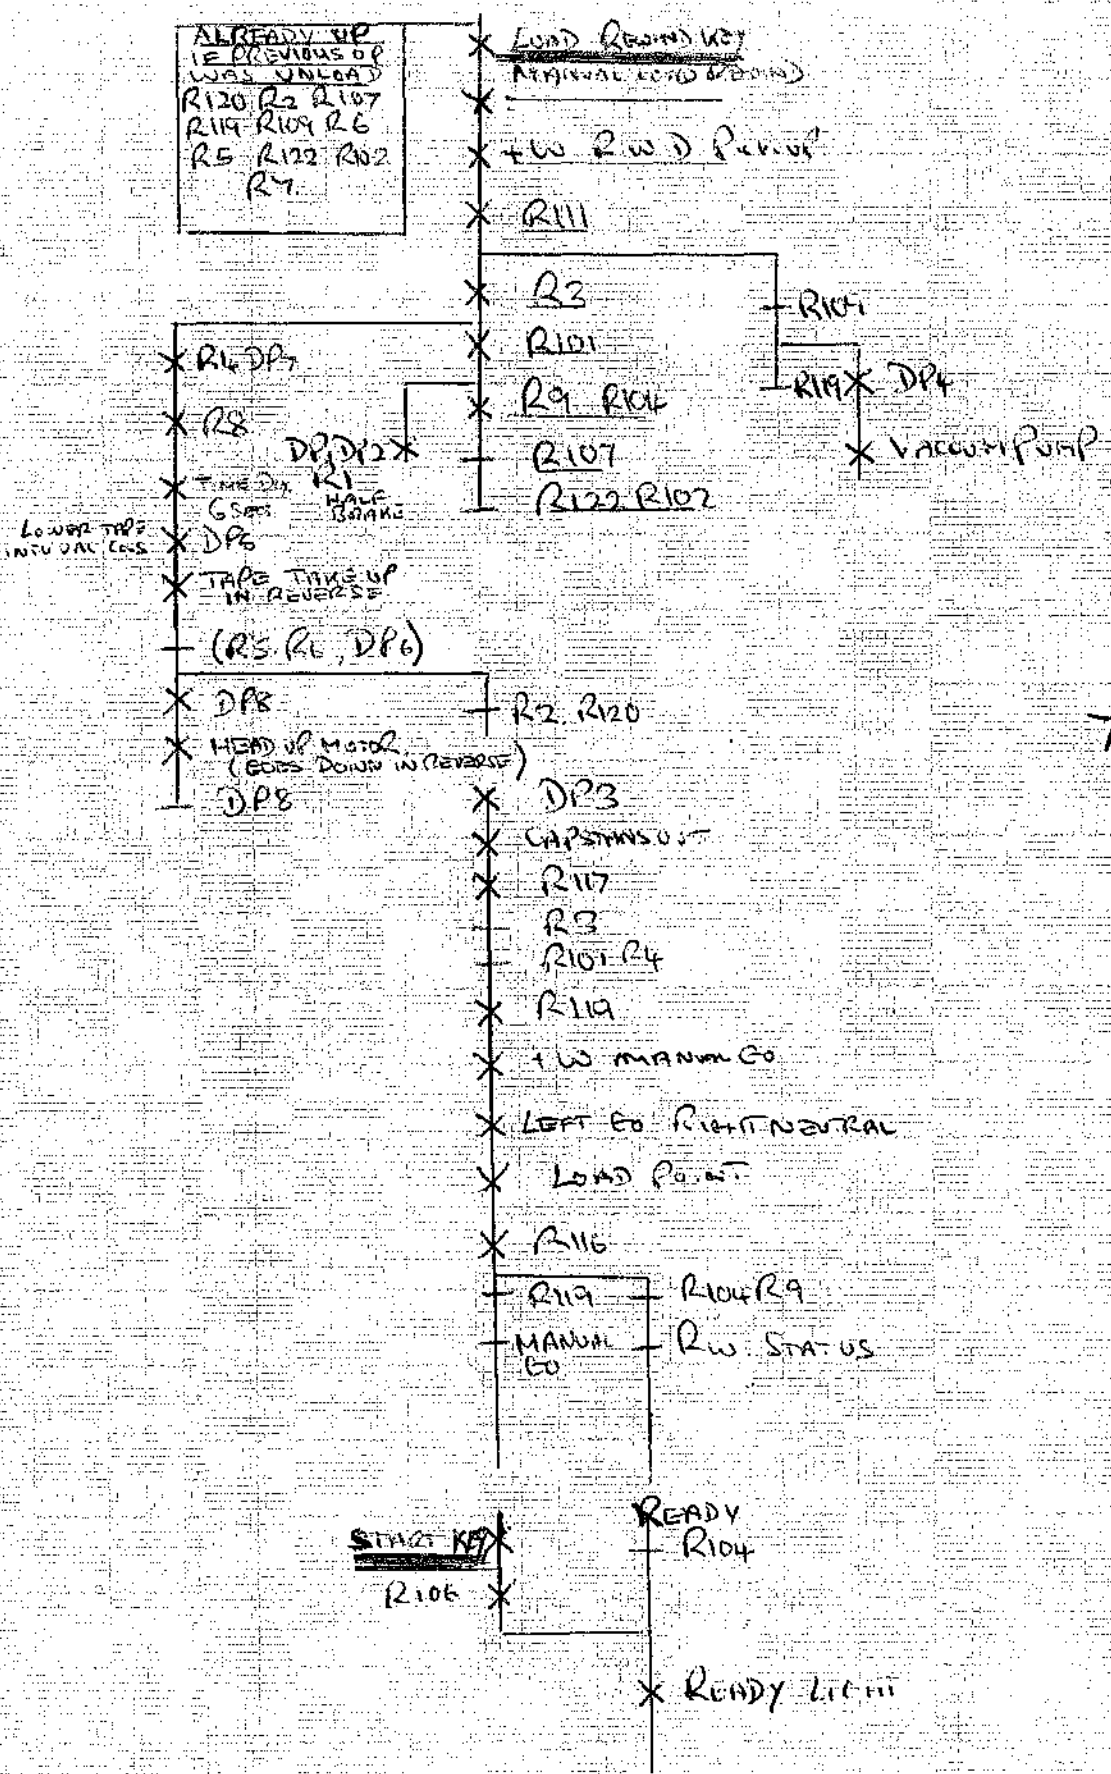 ALREADY UP
IE PREVIOUS OP
WAS UNLOAD
R120 R2 R107
R119 R109 R6
R5 R122 R102
R7.
LOAD REWIND KEY
MANUAL LOAD REWIND
+W RWD
R111
R3
R101
R9 R104
R107
R122 R102
R109
R119
DP4
VACCUM PUMP
R4 DP7
R8
TIME
6 SEC
DP5
LOWER TAPE
TAPE TAKE UP
IN REVERSE
(R5. R6, DP6)
DP1 DP2
R1
HALF
BRAKE
DP8
HEAD UP MOTOR.
(GOES DOWN IN REVERSE)
DP8
R2. R120
DP3
CAPSTANS OUT
R117
R3
R101 R4
R119
+W MANUAL GO
LEFT GO RIGHT NEUTRAL
LOAD POINT
R116
R119
MANUAL
GO
R104 R9
RW. STATUS
START KEY
R106
READY
R104
READY LIGHT